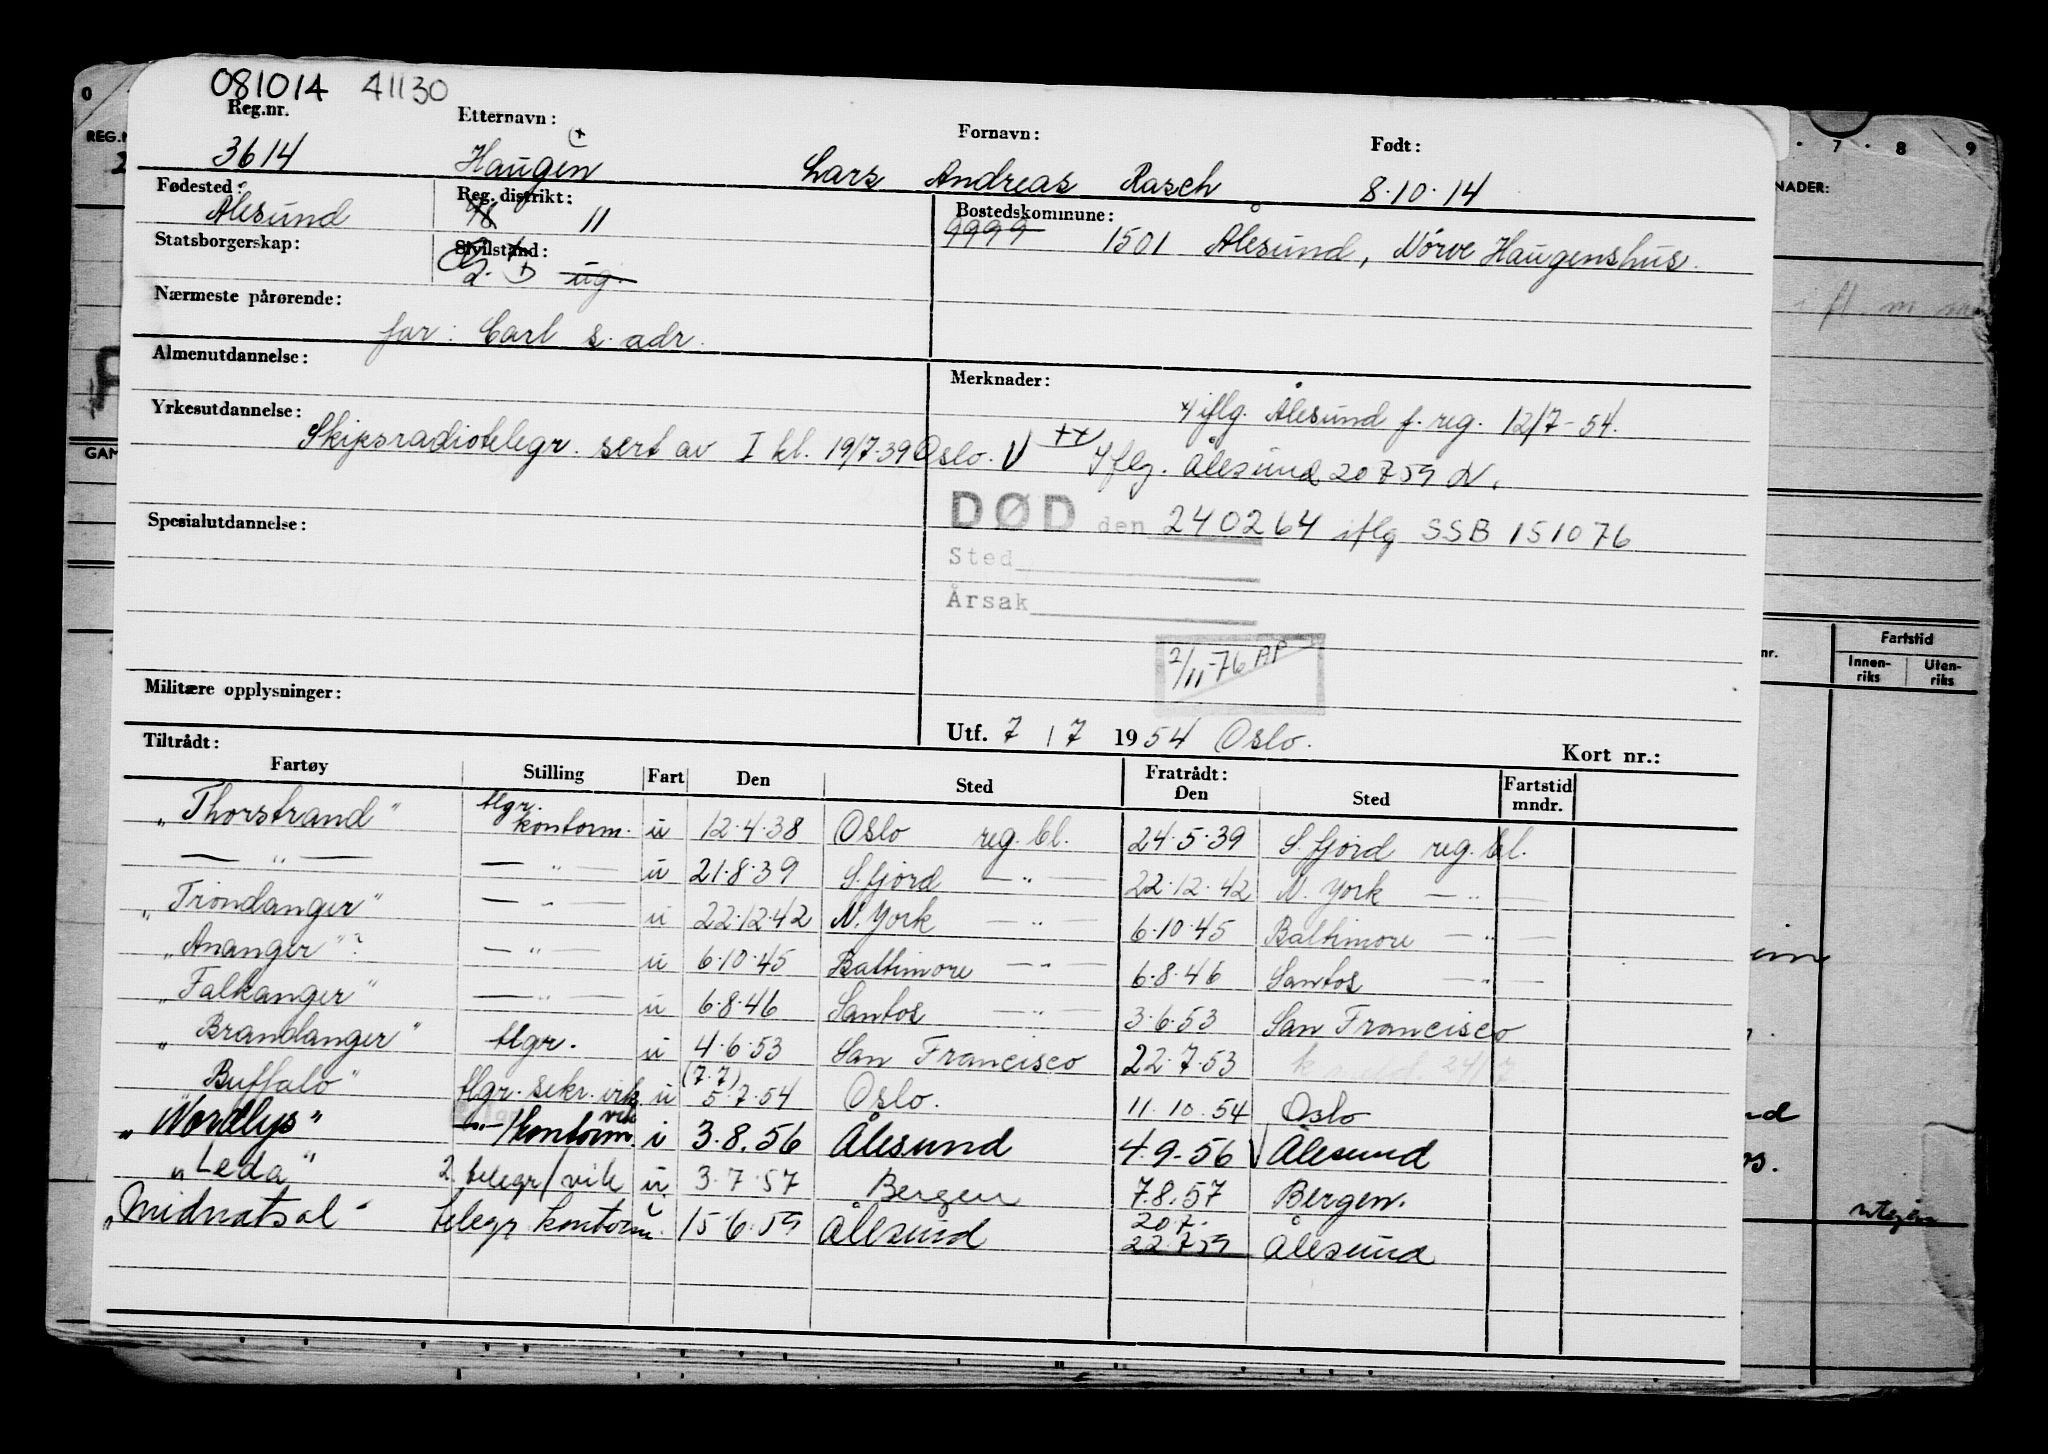 081014 41130
Reg.nr. Etternavn: Fornavn: Født:
3614 Haugen Lars Andreas Rasch 8.10.14
Fødested: Reg. distrikt: Bostedskommune:
Ålesund 11 9999 1501 Ålesund, Nörve Haugenshus.
Statsborgerskap: Sivilstand:
ug.
Nærmeste pårørende:
far: Carl s. adr.
Almenutdannelse: Merknader:
iflg. Ålesund f. reg. 12/7-54.
Yrkesutdannelse:
Skipsradiotelegr. sert av I kl. 19/7-39 Oslo. V ++ Iflg. Ålesund 20759
DØD den 240264 iflg SSB 151076
Spesialutdannelse: Sted
Årsak
2/11-76 AP
Militære opplysninger:
Utf. 7 / 7 1954 Oslo.
Tiltrådt: Kort nr.:
Fartøy Stilling Fart Den Sted Fratrådt: Den Sted Fartstid mndr.
"Thorstrand" tlgr. kontorm. u 12.4.38 Oslo reg. bl. 24.5.39 S. fjord reg. bl.
— " — — " — u 21.8.39 S. fjord — " — 22.12.42 N. York — " —
"Trondanger" — " — u 22.12.42 N. York — " — 6.10.45 Baltimore — " —
"Ananger"? — " — u 6.10.45 Baltimore — " — 6.8.46 Santos — " —
"Falkanger" — " — u 6.8.46 Santos — " — 3.6.53 San Francisco
"Brandanger" tlgr. u 4.6.53 San Francisco 22.7.53
"Buffalo" tlgr. sekr. vik. u (7.7) 5.7.54 Oslo. 11.10.54 Oslo
"Nordlys" — " —/kontorm. vik i 3.8.56 Ålesund 4.9-56 Ålesund
"Leda" 2. telegr/vik u. 3.7.57 Bergen 7.8.57 Bergen.
"Midnatsol" telegr kontorm. u 15.6.59 Ålesund 20.7. 22.759 Ålesund
0
REG.N
GAM
7 . 8 9
NADER:
Fartstid
nr. Innen-riks Uten-riks